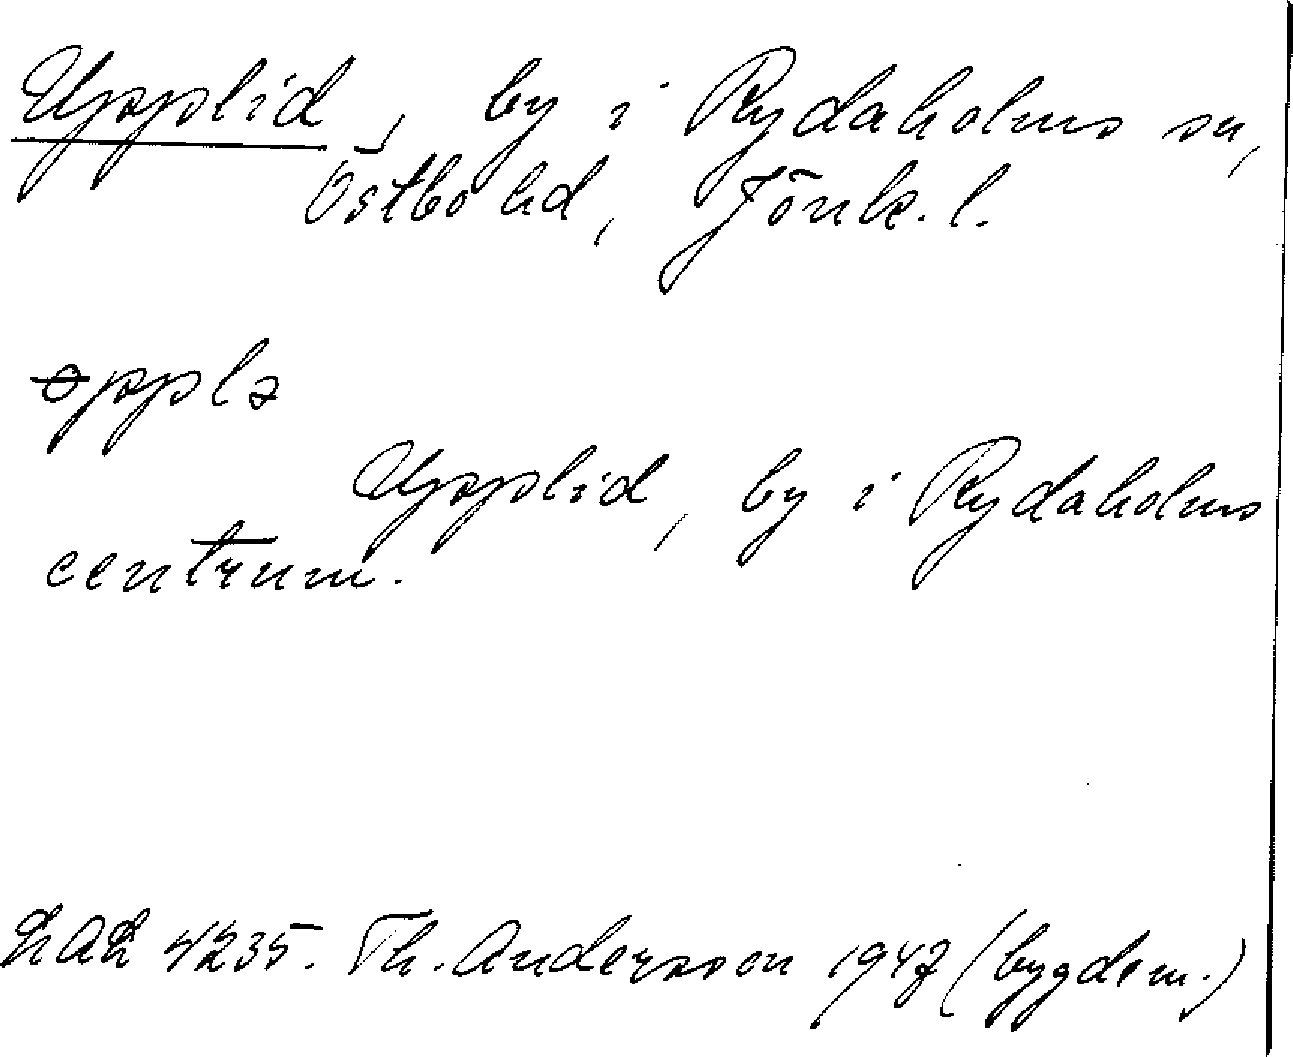 Upplid, by i Rydaholms sn,
Östbo hd, Jönk. l.
ɵpplə
Upplid, by i Rydaholms
centrum.
LAL 4235. Th. Andersson 1947 (bygdem.)